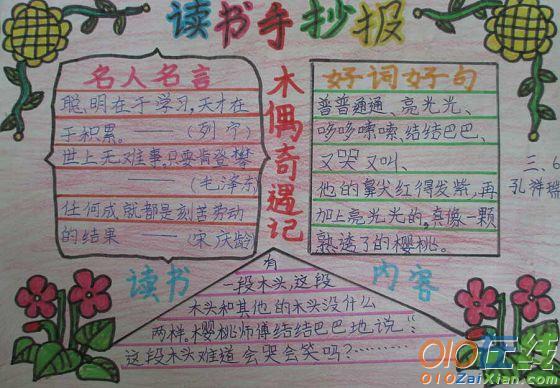 读书手抄报
名人名言
聪、明在于学习,天才在
于积累。——(列宁)
世上无难事,只要肯登攀
——(毛泽东)
任何成就都是刻苦劳动
的结果——(宋庆龄)
木偶奇遇记
好词好句
普普通通、亮光光、
哆哆嗦嗦、结结巴巴、
又哭又叫、
他的鼻尖红得发紫,再
加上亮光光的,真像一颗
熟透了的樱桃。
三、6
孔祥瑞
读书
内容
有
一段木头,这段
木头和其他的木头没什么
两样,樱桃师傅结结巴巴地说“:
这段木头难道会哭会笑吗?………
010在线
010ZaiXian.com